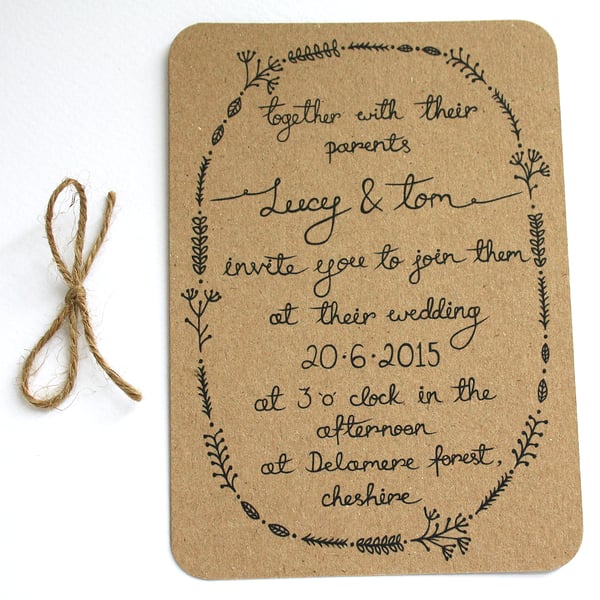 together with their
parents
Lucy & tom
invite you to join them
at their wedding
20·6·2015
at 3 o' clock in the
afternoon
at Delamere forest,
cheshire